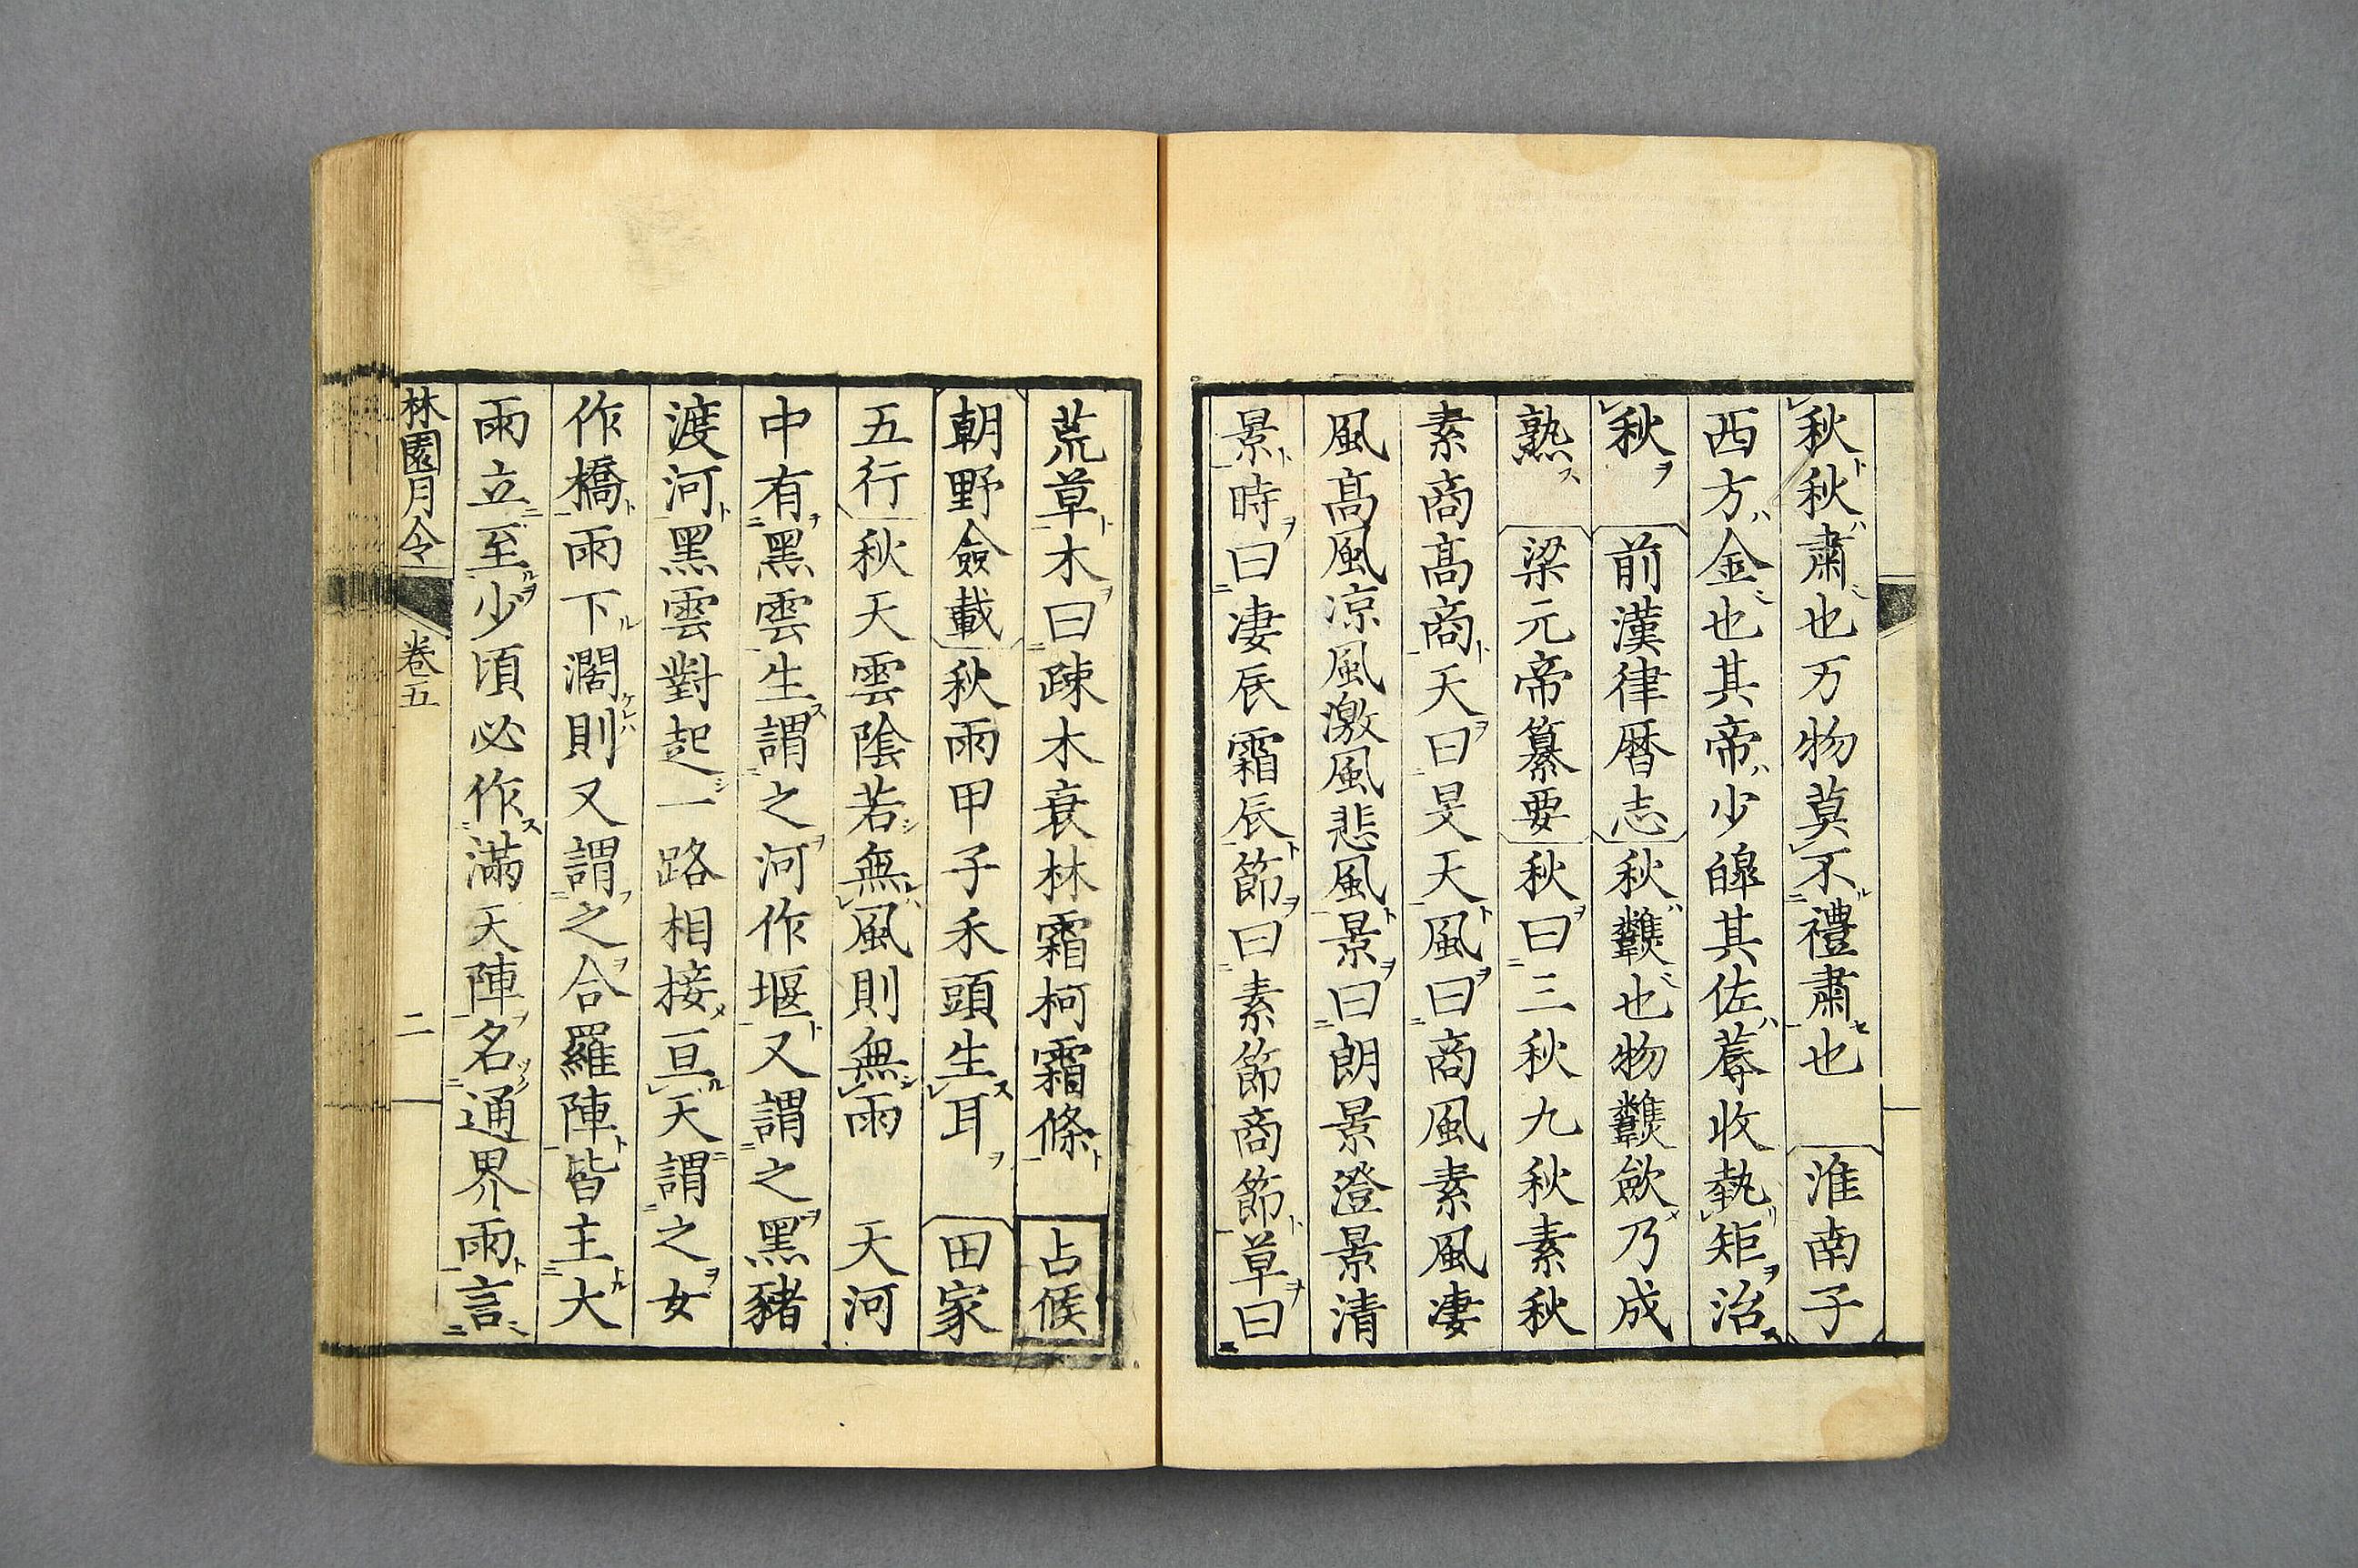 秋秋肅也万物莫不禮肅也 淮南子
西方金也其帝少皥其佐蓐收執矩治
秋 前漢律暦志 秋䆋也物䆋歛乃成
熟 梁元帝纂要 秋曰三秋九秋素秋
素商高商天曰旻天風曰商風素風凄
風髙風涼風激風悲風景曰朗景澄景清
景時曰凄辰霜辰節曰素節商節草曰
荒草木曰疎木衰林霜柯霜條 占候
朝野僉載 秋雨甲子禾頭生耳 田家
五行 秋天雲陰若無風則無雨 天河
中有黑雲生謂之河作堰又謂之黑豬
渡河黑雲對起一路相接亘天謂之女
作橋雨下濶則又謂之合羅陣皆主大
雨立至少頃必作滿天陣名通界雨言
林園月令 卷五 二